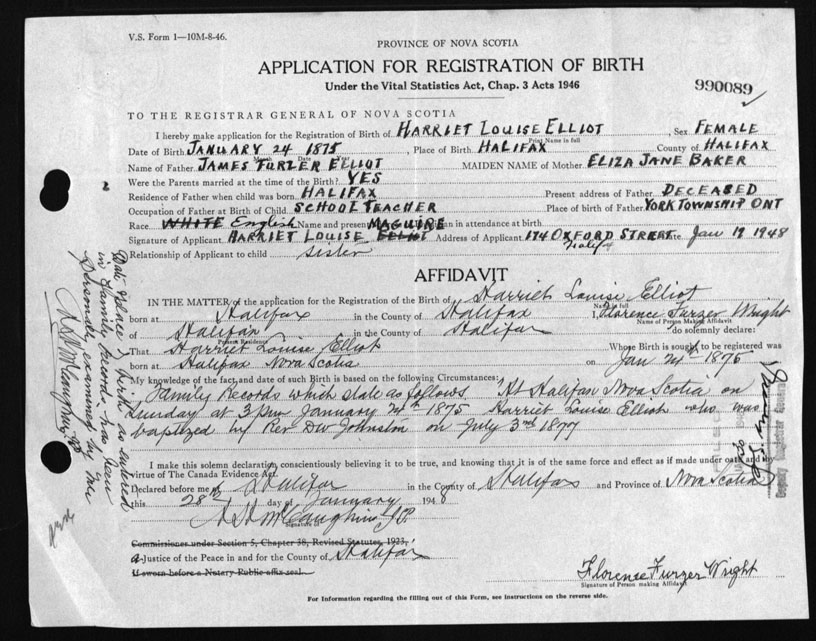 V.S. Form 1—10M-8-46.
PROVINCE OF NOVA SCOTIA
APPLICATION FOR REGISTRATION OF BIRTH
Under the Vital Statistics Act, Chap. 3 Acts 1946
990089
TO THE REGISTRAR GENERAL OF NOVA SCOTIA
I hereby make application for the Registration of Birth of HARRIET LOUISE ELLIOT, Sex FEMALE
Print Name in full
Date of Birth JANUARY 24 1875, Place of Birth HALIFAX County of HALIFAX
Month Date Year
Name of Father JAMES FURZER ELLIOT MAIDEN NAME of Mother ELIZA JANE BAKER
Were the Parents married at the time of Birth? YES
Residence of Father when child was born HALIFAX Present address of Father DECEASED
Occupation of Father at Birth of Child SCHOOL TEACHER Place of birth of Father YORK TOWNSHIP ONT
Race WHITE English Name and present MAGUIRE in attendance at birth
Signature of Applicant HARRIET LOUISE ELLIOT Address of Applicant 174 OXFORD STREET Date Jan 19 1948
Halifax
Relationship of Applicant to child sister
AFFIDAVIT
IN THE MATTER of the application for the Registration of the Birth of Harriet Louise Elliot
Name in full
born at Halifax in the County of Halifax I, Florence Furzer Wright
Name of Person Making Affidavit
of Halifax in the County of Halifax do solemnly declare:
Present Residence
That Harriet Louise Elliot Whose Birth is sought to be registered was
born at Halifax Nova Scotia on Jan 24th 1875
My knowledge of the fact and date of such Birth is based on the following Circumstances:
Family Records which state as follows. "At Halifax Nova Scotia on
Sunday at 3 p.m January 24th 1875 Harriet Louise Elliot who was
baptized by Rev DW Johnston on July 3rd 1877
I make this solemn declaration conscientiously believing it to be true, and knowing that it is of the same force and effect as if made under oath and by
virtue of The Canada Evidence Act.
Declared before me at Halifax in the County of Halifax and Province of Nova Scotia
this 28th day of January 1948
Signature of
Commissioner under Section 5, Chapter 38, Revised Statutes, 1923,
a Justice of the Peace in and for the County of Halifax
If sworn before a Notary Public affix seal
Florence Furzer Wright
Signature of Person making Affidavit
For Information regarding the filling out of this Form, see instructions on the reverse side.
Date & place of birth as entered
in Family records has been
personally examined by me
Deputy Registrar General